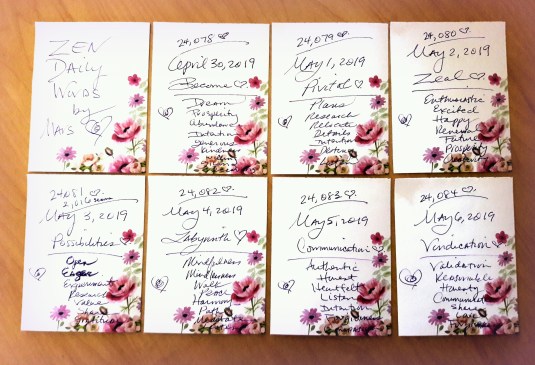 ZEN
Daily
Words
by
24,078
April 30, 2019
Become
Dream
Prosperity
Abundance
Intention
Generous
Kindness
24,079
May 1, 2019
Pivotal
Plans
Research
Relocate
Details
Intention
24,080
May 2, 2019
Zeal
Enthusiastic
Excited
Happy
Renewal
Future
Prosperity
24,081
May 3, 2019
Possibilities
Open
Eager
Experiment
Research
Value
Share
24,082
May 4, 2019
Labyrinth
Mindfulness
Walk
Peace
Harmony
Path
24,083
May 5, 2019
Communication
Authentic
Honest
Heartfelt
Listen
Intention
24,084
May 6, 2019
Vindication
Validation
Reasonable
Honesty
Communicate
Share
Love